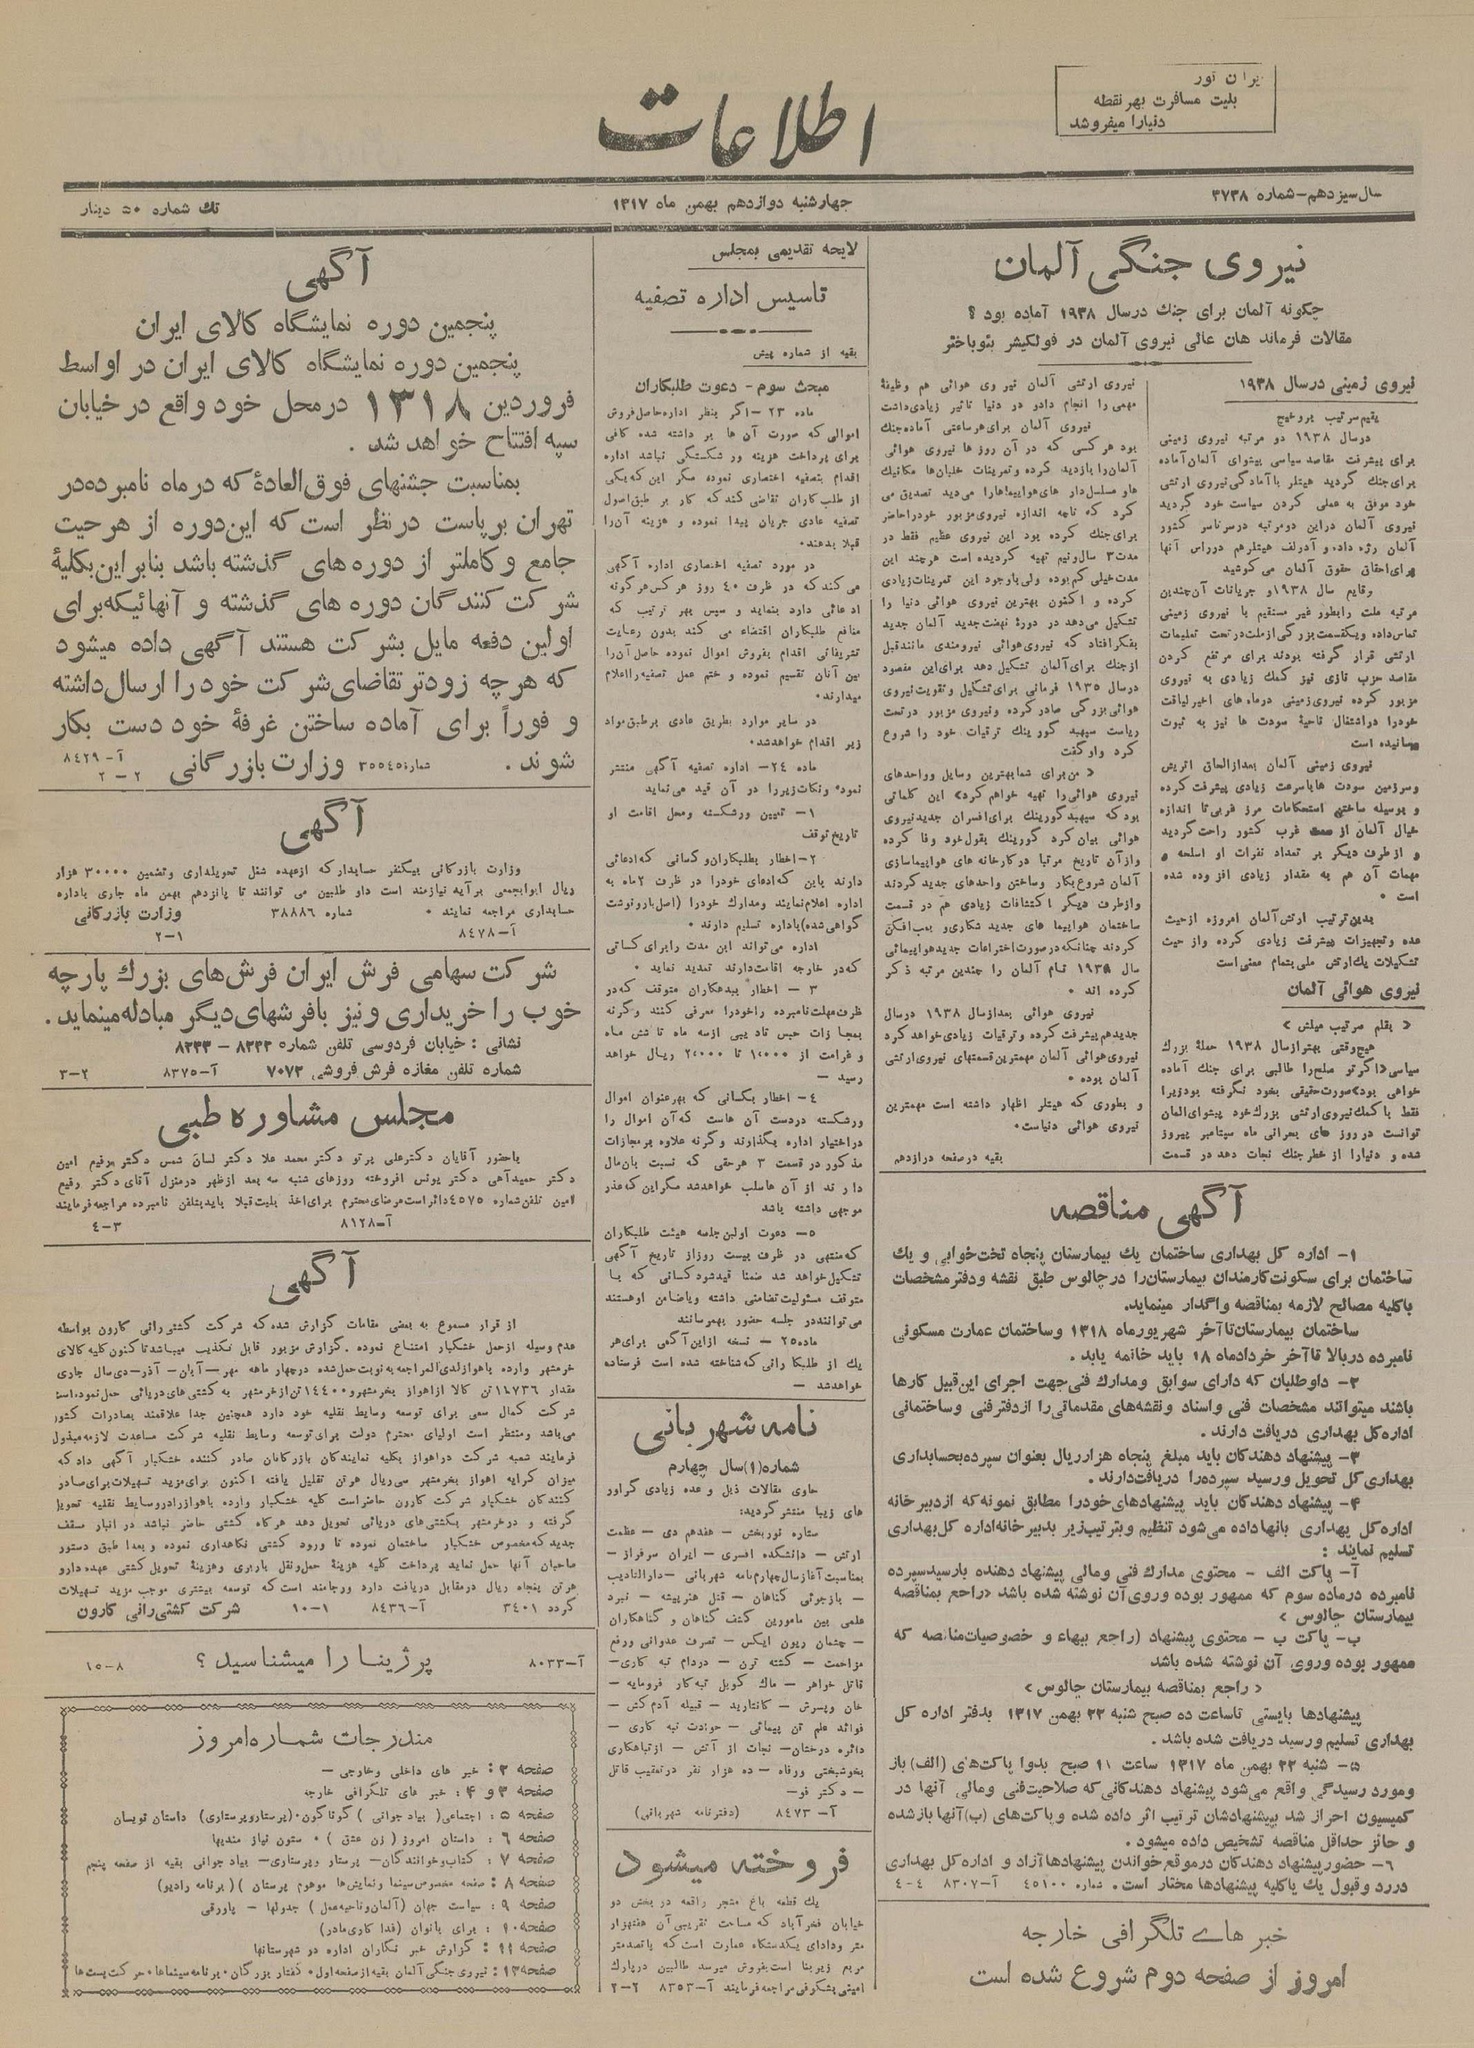 ایران تور
بلیت مسافرت بهر نقطه
دنیارا میفروشد
اطلاعات
سال سیزدهم - شماره ۳۷۳۸
چهارشنبه دوازدهم بهمن ماه ۱۳۱۷
تك شماره ۵۰ دینار
نیروی جنگی آلمان
چگونه آلمان برای جنك درسال ۱۹۳۸ آماده بود ؟
مقالات فرماند هان عالی نیروی آلمان در فولکیشر بئوباختر
نیروی زمینی درسال ۱۹۳۸
درسال ۱۹۳۸ دو مرتبه نیروی زمینی
برای پیشرفت مقاصد سیاسی پیشوای آلمان آماده
برای جنك گردید هیتلر با آمادگی نیروی ارتشی
خود موفق به عملی کردن سیاست خود گردید
نیروی آلمان دراین دومرتبه درسرتاسر کشور
آلمان رژه داده و آدولف هیتلرهم درراس آنها
برای احقاق حقوق آلمان می کوشید
وقایع سال ۱۹۳۸ و جریانات آن چندین
مرتبه ملت رابطور غیر مستقیم با نیروی زمینی
تماس داده ویکقسمت بزرگی ازملت درتحت تعلیمات
ارتشی قرار گرفته بودند برای مرتفع کردن
مقاصد حزب نازی نیز کمك زیادی به نیروی
مزبور کرده نیروی زمینی درماه های اخیر لیاقت
خودرا دراشتغال ناحیهٔ سودت ها نیز به ثبوت
رسانیده است
نیروی زمینی آلمان بعدازالحاق اتریش
وسرزمین سودت ها باسرعت زیادی پیشرفت کرده
و بوسیله ساختن استحکامات مرز غربی تا اندازه
خیال آلمان از سمت غرب کشور راحت گردید
و ازطرف دیگر بر تعداد نفرات او اسلحه و
مهمات آن هم به مقدار زیادی افزوده شده
است •
بدین ترتیب ارتش آلمان امروزه ازحیث
عده وتجهیزات پیشرفت زیادی کرده واز حیث
تشکیلات یك ارتش ملی بتمام معنی است
نیروی هوائی آلمان
« بقلم سرتیپ میلش »
هیچوقتی بهتر از سال ۱۹۳۸ جملهٔ بزرك
سیاسی «اگر تو صلح را طالبی برای جنك آماده
خواهی بود» صورت حقیقی بخود نگرفته بود زیرا
فقط با کمك نیروی ارتشی بزرك خود پیشوای آلمان
توانست در روز های بحرانی ماه سپتامبر پیروز
شده و دنیارا از خطر جنك نجات دهد در قسمت
نیروی ارتشی آلمان نیروی هوائی هم وظیفهٔ
مهمی را انجام داد و در دنیا تاثیر زیادی داشت
نیروی آلمان برای هر ساعتی آماده جنك
بود هر کسی که در آن روز ها نیروی هوائی
آلمان را بازدید کرده و تمرینات خلبان ها مکانیك
ها و مسلسل دار های هواپیماها را می دید تصدیق می
کرد که تا چه اندازه نیروی مزبور خود را حاضر
برای جنك کرده بود این نیروی عظیم فقط در
مدت ۳ سال و نیم تهیه گردیده است هرچند این
مدت خیلی کم بوده ولی با وجود این تمرینات زیادی
کرده و اکنون بهترین نیروی هوائی دنیا را
تشکیل می دهد در دورهٔ نهضت جدید آلمان جدید
بفکر افتاد که نیروی هوائی نیرومندی مانند قبل
از جنك برای آلمان تشکیل دهد برای این مقصود
در سال ۱۹۳۵ فرمانی برای تشکیل و تقویت نیروی
هوائی بزرگی صادر کرده و نیروی مزبور در تحت
ریاست سپهبد گورینك ترقیات خود را شروع
کرد و او گفت
« من برای شما بهترین وسایل و واحدهای
نیروی هوائی را تهیه خواهم کرد» این کلماتی
بود که سپهبد گورینك برای افسران جدید نیروی
هوائی بیان کرد گورینك بقول خود وفا کرده
و از آن تاریخ مرتبا در کارخانه های هواپیماسازی
آلمان شروع بکار و ساختن واحدهای جدید کردند
و از طرف دیگر اکتشافات زیادی هم در قسمت
ساختمان هواپیما های جدید شکاری و بمب افکن
کردند چنانکه در صورت اختراعات جدید هواپیمائی
سال ۱۹۳۸ نام آلمان را چندین مرتبه ذکر
کرده اند •
نیروی هوائی بعد از سال ۱۹۳۸ در سال
جدید هم پیشرفت کرده و ترقیات زیادی خواهد کرد
نیروی هوائی آلمان مهمترین قسمتهای نیروی ارتشی
آلمان بوده •
و بطوری که هیتلر اظهار داشته است مهمترین
نیروی هوائی دنیاست•
بقیه در صفحه دوازدهم
آگهی مناقصه
۱- اداره کل بهداری ساختمان یك بیمارستان پنجاه تخت خوابی و یك
ساختمان برای سکونت کارمندان بیمارستان را در چالوس طبق نقشه و دفتر مشخصات
با کلیه مصالح لازمه بمناقصه واگذار مینماید.
ساختمان بیمارستان تا آخر شهریور ماه ۱۳۱۸ و ساختمان عمارت مسکونی
نامبرده در بالا تا آخر خرداد ماه ۱۸ باید خاتمه یابد .
۲- داوطلبان که دارای سوابق و مدارك فنی جهت اجرای این قبیل کارها
باشند میتوانند مشخصات فنی و اسناد و نقشه های مقدماتی را از دفتر فنی و ساختمانی
اداره کل بهداری دریافت دارند .
۳- پیشنهاد دهندگان باید مبلغ پنجاه هزار ریال بعنوان سپرده بحسابداری
بهداری کل تحویل و رسید سپرده را دریافت دارند .
۴- پیشنهاد دهندگان باید پیشنهاد های خود را مطابق نمونه که از دبیر خانه
اداره کل بهداری بآنها داده می شود تنظیم و بترتیب زیر بدبیر خانه اداره کل بهداری
تسلیم نمایند :
آ- پاکت الف - محتوی مدارك فنی و مالی پیشنهاد دهنده با رسید سپرده
نامبرده در ماده سوم که ممهور بوده و روی آن نوشته شده باشد «راجع بمناقصه
بیمارستان چالوس »
ب- پاکت ب - محتوی پیشنهاد (راجع ببهاء و خصوصیات مناقصه که
ممهور بوده و روی آن نوشته شده باشد
« راجع بمناقصه بیمارستان چالوس »
پیشنهادها بایستی تا ساعت ده صبح شنبه ۲۲ بهمن ۱۳۱۷ بدفتر اداره کل
بهداری تسلیم و رسید دریافت شده باشد .
۵- شنبه ۲۲ بهمن ماه ۱۳۱۷ ساعت ۱۱ صبح بدوا پاکت های (الف) باز
و مورد رسیدگی واقع می شود پیشنهاد دهندگانی که صلاحیت فنی و مالی آنها در
کمیسیون احراز شد به پیشنهادشان ترتیب اثر داده شده و پاکت های (ب) آنها باز شده
و حائز حداقل مناقصه تشخیص داده میشود .
۶- حضور پیشنهاد دهندگان در موقع خواندن پیشنهادها آزاد و اداره کل بهداری
در رد و قبول یك یا کلیه پیشنهادها مختار است . شماره ۴۵۱۰۰ آ-۸۳۰۷ ۴-۴
خبر های تلگرافی خارجه
امروز از صفحه دوم شروع شده است
لایحه تقدیمی بمجلس
تاسیس اداره تصفیه
بقیه از شماره پیش
مبحث سوم - دعوت طلبکاران
ماده ۲۳ - اگر بنظر اداره حاصل فروش
اموالی که صورت آن ها بر داشته شده کافی
برای پرداخت هزینه ور شکستگی نباشد اداره
اقدام بتصفیه اختصاری نموده مگر این که یکی
از طلب کاران تقاضی کند که کار بر طبق اصول
تصفیه عادی جریان پیدا نموده و هزینه آن را
قبلا بدهند•
در مورد تصفیه اختصاری اداره آگهی
می کند که در ظرف ۴۰ روز هر کس هر گونه
ادعائی دارد بنماید و سپس بهر ترتیب که
منافع طلبکاران اقتضاء می کند بدون رعایت
تشریفاتی اقدام بفروش اموال نموده حاصل آن را
بین آنان تقسیم نموده و ختم عمل تصفیه را اعلام
میدارند•
در سایر موارد بطریق عادی بر طبق مواد
زیر اقدام خواهد شد•
ماده ۲۴- اداره تصفیه آگهی منتشر
نموده و نکات زیر را در آن قید می نماید
۱- تعیین ورشکسته و محل اقامت او
تاریخ توقف
۲- اخطار بطلبکاران و کسانی که ادعائی
دارند باین که ادعای خود را در ظرف ۲ ماه به
اداره اعلام نمایند و مدارك خود را (اصل با رونوشت
گواهی شده) باداره تسلیم دارند •
اداره می تواند این مدت را برای کسانی
که در خارجه اقامت دارند تمدید نماید •
۳ - اخطار ببدهکاران متوقف که در
ظرف مهلت نامبرده خود را معرفی کنند وگرنه
بمجازات حبس تادیبی از سه ماه تا شش ماه
و غرامت از ۱۰۰۰ تا ۲۰۰۰۰ ریال خواهد
رسید -
۴- اخطار بکسانی که بهر عنوان اموال
ورشکسته در دست آن هاست که آن اموال را
در اختیار اداره بگذارند وگرنه علاوه بر مجازات
مذکور در قسمت ۳ هر حقی که نسبت بآن مال
دارند از آن ها سلب خواهد شد مگر این که عذر
موجهی داشته باشد
۵- دعوت اولین جلسه هیئت طلبکاران
که منتهی در ظرف بیست روز از تاریخ آگهی
تشکیل خواهد شد ضمنا قید شود کسانی که با
متوقف مسئولیت تضامنی داشته و یا ضامن او هستند
می توانند در جلسه حضور بهمرسانند
ماده ۲۵ - نسخه از این آگهی برای هر
یك از طلبکارانی که شناخته شده است فرستاده
خواهد شد -
نامه شهربانی
شماره (۱) سال چهارم
حاوی مقالات ذیل و عده زیادی گراور
های زیبا منتشر گردید:
ستاره نوربخش - هفدهم دی - عظمت
ارتش - دانشکده افسری - ایران سرفراز -
بمناسبت آغاز سال چهارم نامه شهربانی - دارالتادیب
- بازجوئی گناهان - قتل هنرپیشه - نبرد
علمی بین مامورین کشف گناهان و گناهکاران
- چشمان ریون ایکس - تصرف عدوانی و رفع
مزاحمت - کشته ترن - دردام تبه کاری-
قاتل خواهر - ماك گویل تبه کار فرومایه -
خان و پسرش - کانتارید - قبیله آدم کش -
فوائد علم تن پیمائی - حوادث تبه کاری -
دائره درختان - نجات از آتش - از تباهکاری
بخوشبختی و رفاه - ده هزار نفر در تعقیب قاتل
- دکتر فو-
آ- ۸۴۷۳ (دفتر نامه شهربانی)
فروخته میشود
یك قطعه باغ مشجر واقعه در بخش دو
خیابان فخرآباد که مساحت تقریبی آن هفتهزار
متر و دارای یکدستگاه عمارت است که پانصد متر
مربع زیر بنا است بفروش میرسد طالبین در پارك
امینی بشکرفی مراجعه فرمایند آ-۸۳۵۳ ۲-۲
آگهی
پنجمین دوره نمایشگاه کالای ایران
پنجمین دوره نمایشگاه کالای ایران در اواسط
فروردین ۱۳۱۸ در محل خود واقع در خیابان
سپه افتتاح خواهد شد .
بمناسبت جشنهای فوق العادهٔ که در ماه نامبرده در
تهران برپاست در نظر است که این دوره از هر حیث
جامع و کاملتر از دوره های گذشته باشد بنابراین بکلیهٔ
شرکت کنندگان دوره های گذشته و آنهائیکه برای
اولین دفعه مایل بشرکت هستند آگهی داده میشود
که هرچه زودتر تقاضای شرکت خود را ارسال داشته
و فوراً برای آماده ساختن غرفهٔ خود دست بکار
شوند . شماره ۳۵۵۴۵ وزارت بازرگانی آ- ۸۴۲۹
۲-۲
آگهی
وزارت بازرگانی بیکنفر حسابدار که از عهده شغل تحویلداری و تضمین ۳۰۰۰۰ هزار
ریال ابوابجمعی بر آید نیازمند است داوطلبین می توانند تا پانزدهم بهمن ماه جاری باداره
حسابداری مراجعه نمایند • شماره ۳۸۸۸۶ وزارت بازرگانی
آ-۸۴۷۸ ۲-۱
شرکت سهامی فرش ایران فرش های بزرك پارچه
خوب را خریداری و نیز با فرشهای دیگر مبادله مینماید .
نشانی : خیابان فردوسی تلفن شماره ۸۲۲۲ - ۸۲۳۳
شماره تلفن مغازه فرش فروشی ۷۰۷۲ آ-۸۳۷۵ ۳-۲
مجلس مشاوره طبی
با حضور آقایان دکتر علی پرتو دکتر محمد علا دکتر لسان شمس دکتر مرقیم امین
دکتر حمید آهی دکتر یونس افروخته روزهای شنبه سه بعد از ظهر در منزل آقای دکتر رفیع
امین تلفن شماره ۴۵۷۵ دائر است مرضای محترم برای اخذ بلیت قبلا باید بتلفن نامبرده مراجعه فرمایند
آ-۸۱۲۸ ۴-۳
آگهی
از قرار مسموع به بعضی مقامات گزارش شده که شرکت کشتی رانی کارون بواسطه
عدم وسیله از حمل خشکبار امتناع نموده . گزارش مزبور قابل تکذیب میباشد تا کنون کلیه کالای
خرمشهر وارده باهواز لدی المراجعه به نوبت حمل شده در چهار ماهه مهر - آبان - آذر - دی سال جاری
مقدار ۱۱۷۳۶ تن کالا از اهواز بخرمشهر و ۱۴۴۰۰ تن از خرمشهر به کشتی های دریائی حمل نموده است
شرکت کمال سعی برای توسعه وسایط نقلیه خود دارد همچنین جدا علاقمند بصادرات کشور
می باشد و منتظر است اولیای محترم دولت برای توسعه وسایط نقلیه شرکت مساعدت لازمه مبذول
فرمایند شعبه شرکت در اهواز بکلیه نمایندگان بازرگانان صادر کننده خشکبار آگهی داد که
میزان کرایه اهواز بخرمشهر سی ریال هر تن تقلیل یافته اکنون برای مزید تسهیلات برای صادر
کنندگان خشکبار شرکت کارون حاضر است کلیه خشکبار وارده باهواز را در وسایط نقلیه تحویل
گرفته و در خرمشهر بکشتی های دریائی تحویل دهد هرگاه کشتی حاضر نباشد در انبار مسقف
جدید که مخصوص خشکبار ساختمان نموده تا ورود کشتی نگاهداری نموده و بعدا طبق دستور
صاحبان آنها حمل نماید پرداخت کلیه هزینهٔ حمل و نقل باربری و هزینهٔ تحویل کشتی عهده دار و
هر تن پنجاه ریال در مقابل دریافت دارد و رجامند است که توسعه بیشتری موجب مزید تسهیلات
گردد ۳۴۰۱ آ-۸۴۳۶ ۱۰-۱ شرکت کشتی رانی کارون
آ-۸۰۳۳ پرژینا را میشناسید ؟ ۱۵-۸
مندرجات شماره امروز
صفحه ۲ : خبر های داخلی و خارجی -
صفحه ۳ و ۴ : خبر های تلگرافی خارجه
صفحه ۵ : اجتماعی ( بیاد جوانی ) گوناگون • (پرستار و پرستاری) داستان نویسان
صفحه ۶ : داستان امروز ( زن عشق ) • ستون نیاز مندیها
صفحه ۷ : کتاب و خوانندگان - پرستار و پرستاری - بیاد جوانی بقیه از صفحه پنجم
صفحه ۸ : صفحه مخصوص سینما و نمایش ها موهوم پرستان ) ( برنامه رادیو)
صفحه ۹ : سیاست جهان (آلمان و ناحیه ممل ) جدولها - پاورقی
صفحه ۱۰ : برای بانوان (فدا کاری مادر)
صفحه ۱۱ : گزارش خبر نگاران اداره در شهرستانها
صفحه ۱۲ : نیروی جنگی آلمان بقیه از صفحه اول • گفتار بزرگان • برنامه سینماها • حرکت پست ها